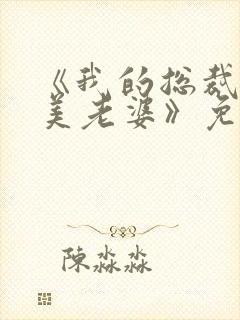 《我的总裁
美老婆》免
陈淼淼